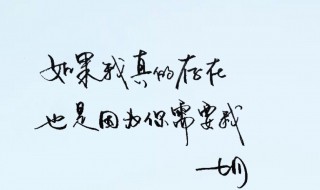 如果我真的存在
也是因为你需要我